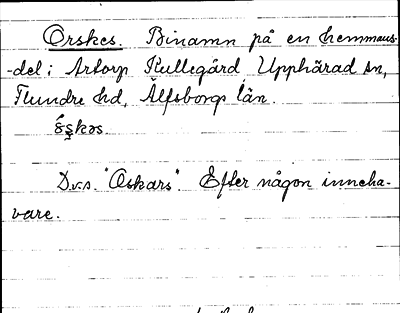 Orskes. Binamn på en hemmans-
-del i Artorp Kullegård, Upphärad sn,
Flundre hd, Älfsborgs län.
D.v.s. "Oskars". Efter någon inneha-
vare.